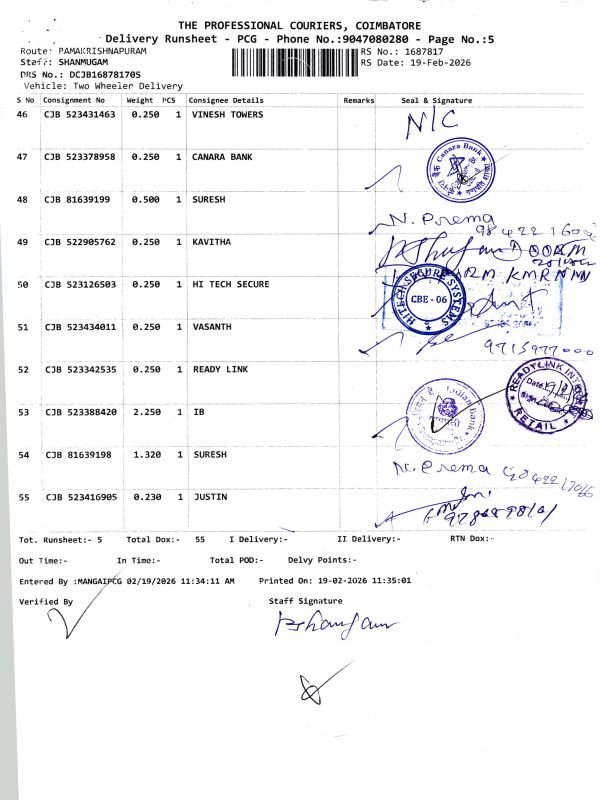 THE PROFESSIONAL COURIERS, COIMBATORE
Delivery Runsheet - PCG - Phone No.:9047080280 - Page No.:5
Route: PAMAKRISHNAPURAM
RS No.: 1687817
Staff: SHANMUGAM
RS Date: 19-Feb-2026
DRS No.: DCJB168781705
Vehicle: Two Wheeler Delivery
S No Consignment No Weight PCS Consignee Details Remarks Seal & Signature
46 CJB 523431463 0.250 1 VINESH TOWERS N/C
47 CJB 523378958 0.250 1 CANARA BANK
Canara Bank
48 CJB 81639199 0.500 1 SURESH
N. Prema
49 CJB 522905762 0.250 1 KAVITHA
50 CJB 523126503 0.250 1 HI TECH SECURE
HITECH SECURE SYSTEMS
CBE - 06
51 CJB 523434011 0.250 1 VASANTH
9715977000
52 CJB 523342535 0.250 1 READY LINK
READYLINK
RETAIL
53 CJB 523388420 2.250 1 IB
Indian Bank
54 CJB 81639198 1.320 1 SURESH
N. Prema
55 CJB 523416905 0.230 1 JUSTIN
Tot. Runsheet:- 5 Total Dox:- 55 I Delivery:- II Delivery:- RTN Dox:-
Out Time:- In Time:- Total POD:- Delvy Points:-
Entered By :MANGAIPCG 02/19/2026 11:34:11 AM Printed On: 19-02-2026 11:35:01
Verified By Staff Signature